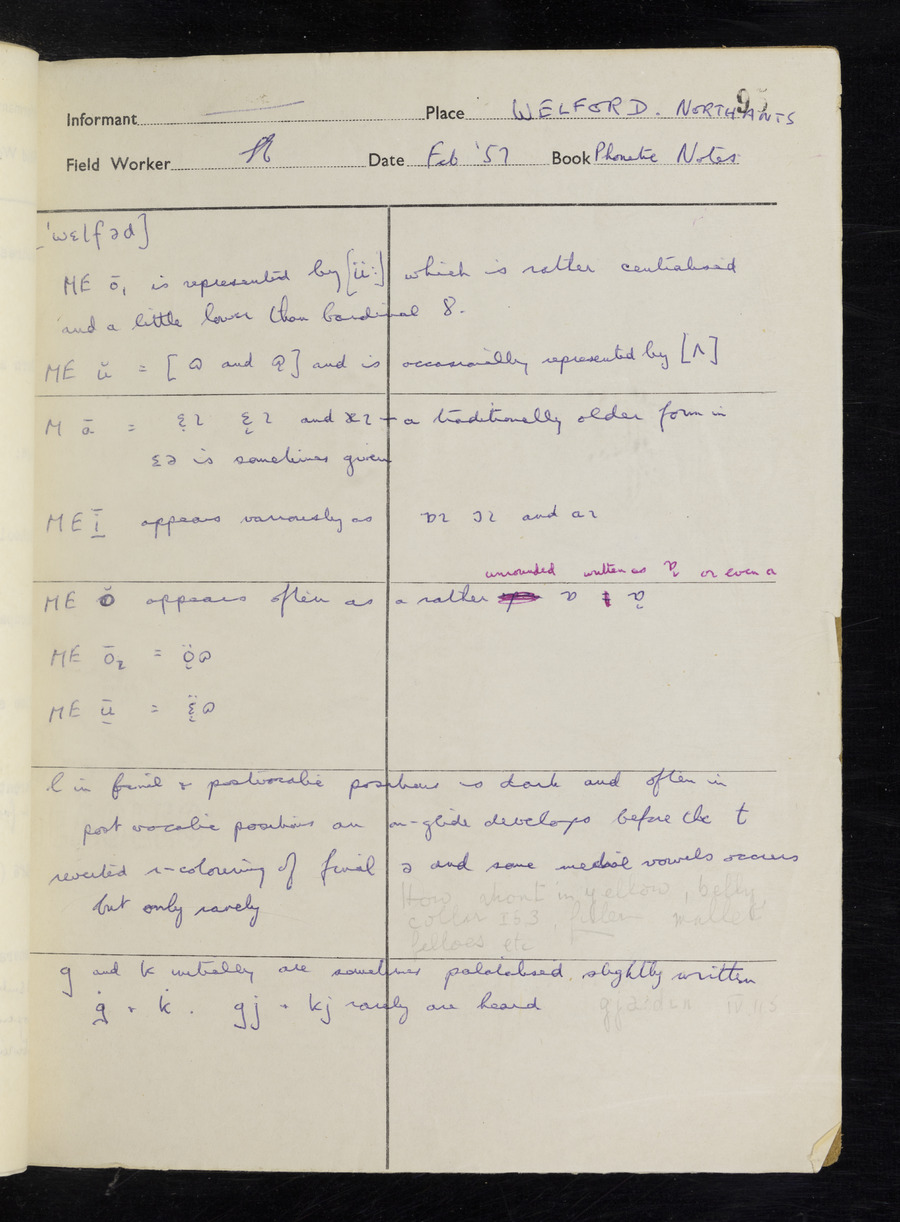 95
Informant Place WELFORD. NORTHANTS
Field Worker Date Feb '57 Book Phonetic Notes
['wɛlfəd]
ME ō₁ is represented by [ü:] which is rather centralised
and a little lower than Cardinal 8.
ME ŭ = [ɷ and ɷ̞] and is occasionally represented by [ʌ]
M ā = ɛ̣ɪ ɛ̞ɪ and æɪ – a traditionally older form in
ɛə is sometimes given
ME ī appears variously as ɒɪ ɔɪ and aɪ
unrounded written as ɒ̜ or even a
ME ŏ appears often as a rather ɒ ɒ̈
ME ō₂ = ö̞ɷ
ME ū = ɛ̞̈ɷ
l in final & postvocalic positions is dark and often in
post vocalic positions an on-glide develops before the ɫ
reverted r-colouring of final ə and some medial vowels occurs
but only rarely
How about in yellow, belly,
collar I 5 3, mallet
felloes etc
g and k initially are sometimes palatalised. slightly written
ġ + k̇. gj + kj rarely are heard gja:dn IV.11.5